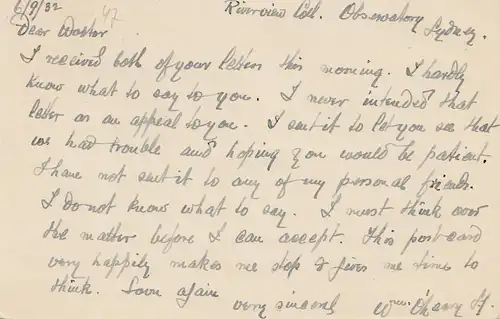 6/9/32 47 Riverview Coll. Observatory
Dear Doctor Sydney.
I received both of your letters this morning. I hardly
know what to say to you. I never intended that
letter as an appeal to you. I sent it to let you see that
we had trouble and hoping you would be patient.
I have not sent it to any of my personal friends.
I do not know what to say. I must think over
the matter before I can accept. This post card
very happily makes me stop & gives me time to
think. Soon again
very sincerely Wm. O'Leary SJ.